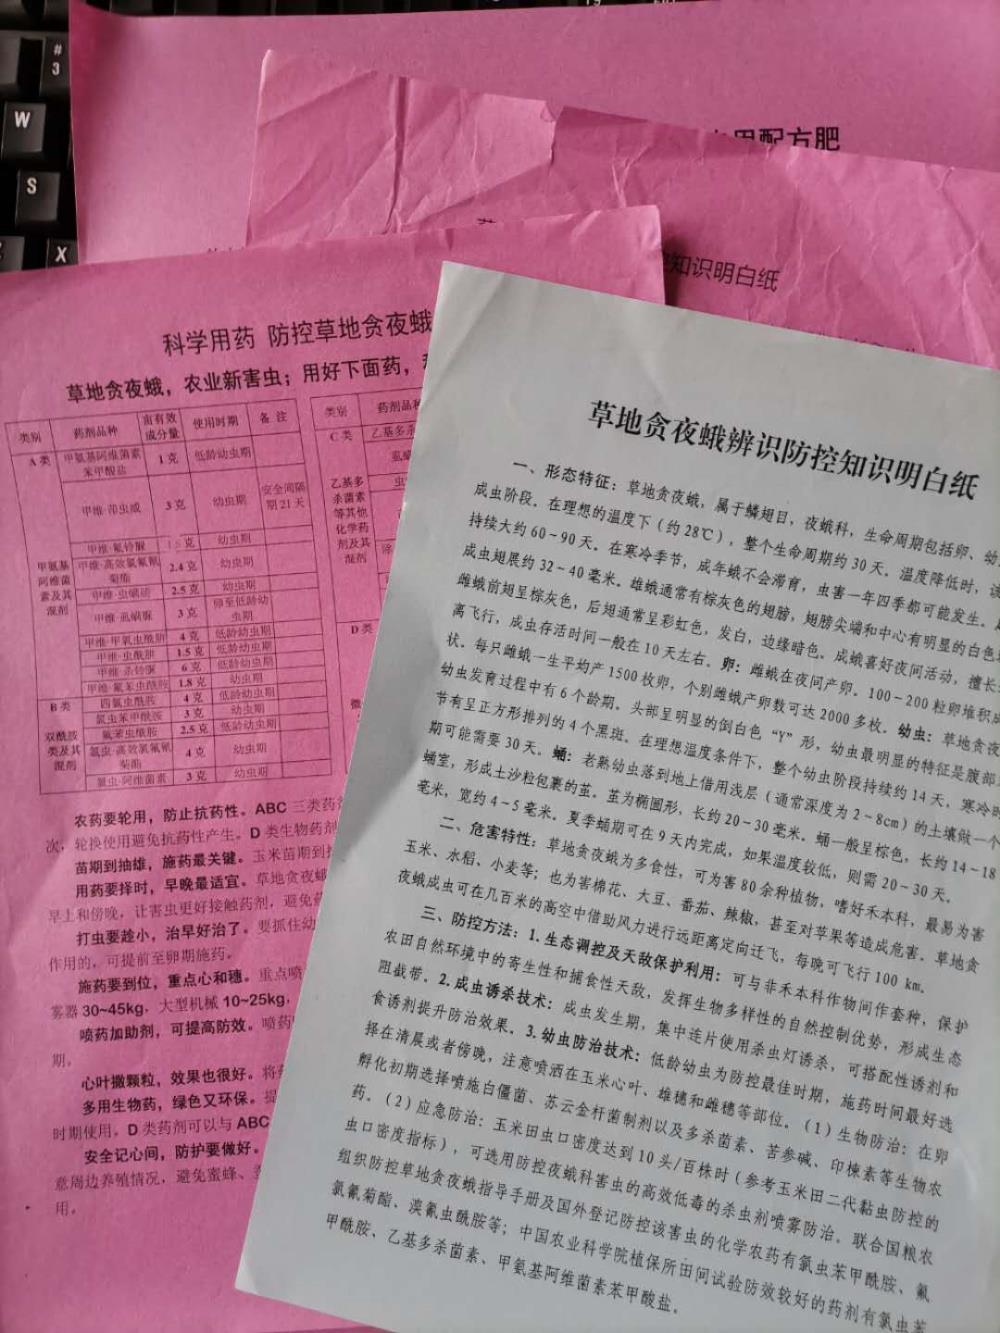 #
3
W
S
X
田配方肥
知识明白纸
科学用药 防控草地贪夜蛾
草地贪夜蛾，农业新害虫；用好下面药，
类别 药剂品种 亩有效成分量 使用时期 备 注
A 类 甲氨基阿维菌素苯甲酸盐 1 克 低龄幼虫期
甲氨基阿维菌素及其混剂
甲维·茚虫威 3 克 幼虫期 安全间隔期 21 天
甲维·氟铃脲 1.5 克 幼虫期
甲维·高效氯氟氰菊酯 2.4 克 幼虫期
甲维·虫螨腈 2.5 克 幼虫期
甲维·虱螨脲 3 克 卵至低龄幼虫期
甲维·甲氧虫酰肼 4 克 低龄幼虫期
甲维·虫酰肼 1.5 克 低龄幼虫期
甲维·杀铃脲 6 克 低龄幼虫期
甲维·氟苯虫酰胺 1.8 克 幼虫期
B 类 四氯虫酰胺 4 克 低龄幼虫期
双酰胺类及其混剂
氯虫苯甲酰胺 3 克 幼虫期
氟苯虫酰胺 2.5 克 低龄幼虫期
氯虫·高效氯氟氰菊酯 4 克 幼虫期
氯虫·阿维菌素 3 克 幼虫期
类别 药剂品种
C 类 乙基多杀
乙基多杀菌素等其他化学药剂及其混剂
D 类
农药要轮用，防止抗药性。ABC 三类药剂
次，轮换使用避免抗药性产生。D 类生物药剂
苗期到抽雄，施药最关键。玉米苗期到抽
用药要择时，早晚最适宜。草地贪夜蛾
早上和傍晚，让害虫更好接触药剂，避免
打虫要趁小，治早好治了。要抓住幼
作用的，可提前至卵期施药。
施药要到位，重点心和穗。重点喷
雾器 30~45kg，大型机械 10~25kg，
喷药加助剂，可提高防效。喷药
期。
心叶撒颗粒，效果也很好。将
多用生物药，绿色又环保。提
时期使用。D 类药剂可以与 ABC
安全记心间，防护要做好。
意周边养殖情况，避免蜜蜂、
用。
草地贪夜蛾辨识防控知识明白纸
一、形态特征：草地贪夜蛾，属于鳞翅目，夜蛾科，生命周期包括卵、幼
成虫阶段。在理想的温度下（约 28℃），整个生命周期约 30 天。温度降低时，该
持续大约 60~90 天。在寒冷季节，成年蛾不会滞育，虫害一年四季都可能发生。
成虫翅展约 32~40 毫米。雄蛾通常有棕灰色的翅膀，翅膀尖端和中心有明显的白色
雌蛾前翅呈棕灰色，后翅通常呈彩虹色，发白，边缘暗色。成蛾喜好夜间活动，擅长
离飞行，成虫存活时间一般在 10 天左右。卵：雌蛾在夜间产卵。100-200 粒卵堆积成
状。每只雌蛾一生平均产 1500 枚卵，个别雌蛾产卵数可达 2000 多枚。幼虫：草地贪夜
幼虫发育过程中有 6 个龄期。头部呈明显的倒白色“Y”形，幼虫最明显的特征是腹部
节有呈正方形排列的 4 个黑斑。在理想温度条件下，整个幼虫阶段持续约 14 天，寒冷时
期可能需要 30 天。蛹：老熟幼虫落到地上借用浅层（通常深度为 2~8cm）的土壤做一个
蛹室，形成土沙粒包裹的茧。茧为椭圆形，长约 20~30 毫米。蛹一般呈棕色，长约 14-18
毫米，宽约 4~5 毫米。夏季蛹期可在 9 天内完成，如果温度较低，则需 20~30 天。
二、危害特性：草地贪夜蛾为多食性，可为害 80 余种植物，嗜好禾本科，最易为害
玉米、水稻、小麦等；也为害棉花、大豆、番茄、辣椒，甚至对苹果等造成危害。草地贪
夜蛾成虫可在几百米的高空中借助风力进行远距离定向迁飞，每晚可飞行 100 km。
三、防控方法：1.生态调控及天敌保护利用：可与非禾本科作物间作套种，保护
农田自然环境中的寄生性和捕食性天敌，发挥生物多样性的自然控制优势，形成生态
阻截带。2.成虫诱杀技术：成虫发生期，集中连片使用杀虫灯诱杀，可搭配性诱剂和
食诱剂提升防治效果。3.幼虫防治技术：低龄幼虫为防控最佳时期，施药时间最好选
择在清晨或者傍晚，注意喷洒在玉米心叶、雄穗和雌穗等部位。（1）生物防治：在卵
孵化初期选择喷施白僵菌、苏云金杆菌制剂以及多杀菌素、苦参碱、印楝素等生物农
药。（2）应急防治：玉米田虫口密度达到 10 头/百株时（参考玉米田二代黏虫防控的
虫口密度指标），可选用防控夜蛾科害虫的高效低毒的杀虫剂喷雾防治。联合国粮农
组织防控草地贪夜蛾指导手册及国外登记防控该害虫的化学农药有氯虫苯甲酰胺、氟
氯氰菊酯、溴氰虫酰胺等；中国农业科学院植保所田间试验防效较好的药剂有氯虫苯
甲酰胺、乙基多杀菌素、甲氨基阿维菌素苯甲酸盐。